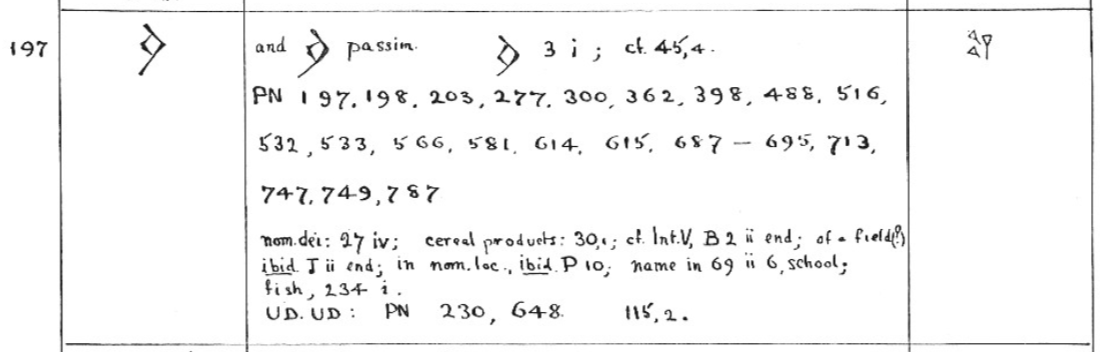 197 and passim. 3 i ; cf. 45,4.
PN 197, 198, 203, 277, 300, 362, 398, 488, 516,
532, 533, 566, 581, 614, 615, 687 – 695, 713,
747, 749, 787
nom.dei: 27 iv; cereal products: 30,1; cf. Int.V, B 2 ii end; of a field(?)
ibid. J ii end; in nom.loc., ibid. P 10; name in 69 ii 6, school;
fish, 234 i.
UD.UD : PN 230, 648. 115, 2.